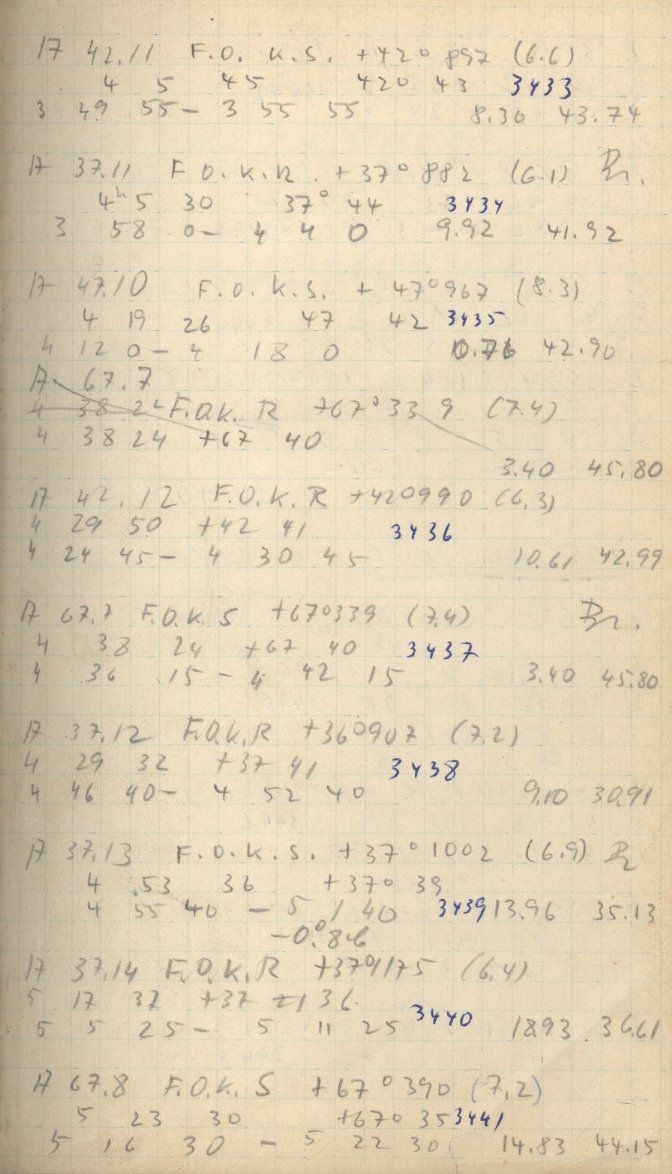 A 42.11 F.O. K.S. +42° 897 (6.6)
4 5 45 420 43 3433
3 49 55 - 3 55 55 8.30 43.74
A 37.11 F.O.K.R. +37° 882 (6.1) Br.
4h 5 30 37° 44 3434
3 58 0 - 4 4 0 9.92 41.92
A 47.10 F.O.K.S. + 47°967 (8.3)
4 19 26 47 42 3435
4 12 0 - 4 18 0 0.76 42.90
A 67.7
4 38 24 F.O.K. R +67°339 (7.4)
4 38 24 +67 40
3.40 45.80
A 42.12 F.O.K.R +420990 (6.3)
4 29 50 +42 41 3436
4 24 45 - 4 30 45 10.61 42.99
A 67.7 F.O.K S +670339 (7.4) Br.
4 38 24 +67 40 3437
4 36 15 - 4 42 15 3.40 45.80
A 37.12 F.O.K.R +360907 (7.2)
4 29 32 +37 41 3438
4 46 40 - 4 52 40 9.10 30.91
A 37.13 F.O.K.S. +37° 1002 (6.9)
4 53 36 +370 39
4 55 40 - 5 1 40 3439 13.96 35.13
-0°.86
A 37.14 F.O.K.R +3701175 (6.4)
5 17 32 +37 36
5 5 25 - 5 11 25 3440 18.93 36.61
A 67.8 F.O.K. S +67° 390 (7.2)
5 23 30 +670 35 3441
5 16 30 - 5 22 30 14.83 44.15